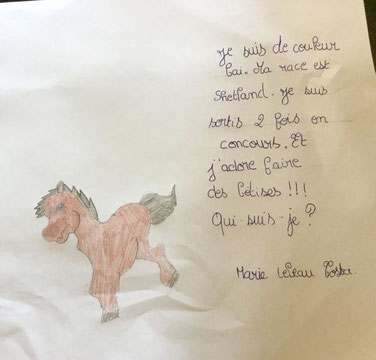 Je suis de couleur
bai. Ma race est
Shetland. Je suis
sortis 2 fois en
concours. Et
j'adore faire
des bêtises !!!
Qui-suis-je ?
Marie